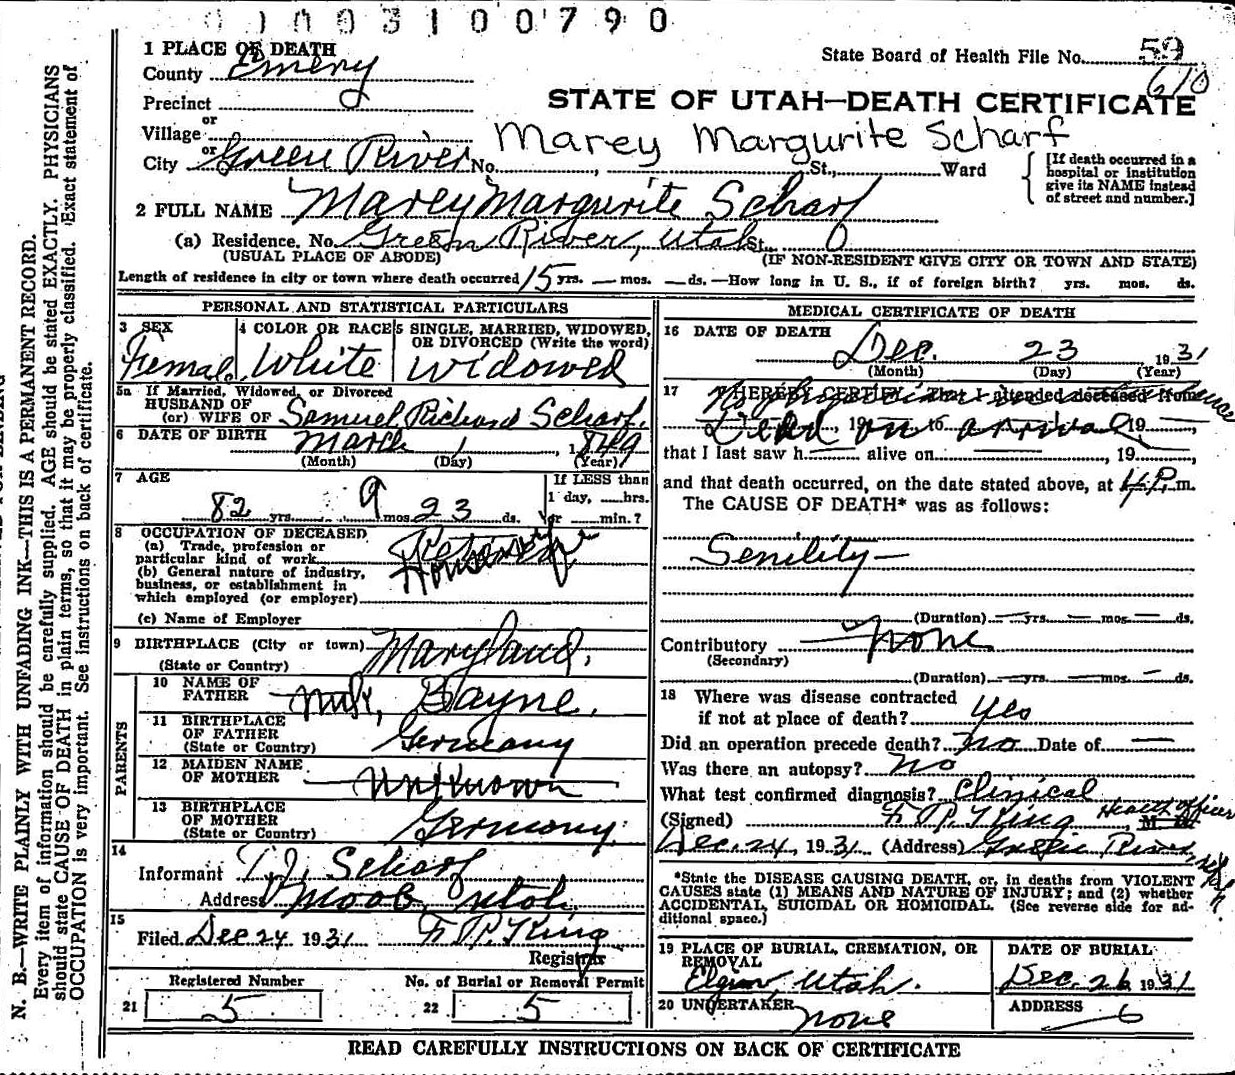 01003100790
1 PLACE OF DEATH
County Emery
State Board of Health File No. 59
610
Precinct
STATE OF UTAH—DEATH CERTIFICATE
or
Village
Marey Margurite Scharf
or
City Green River No. St., Ward
[If death occurred in a hospital or institution give its NAME instead of street and number.]
2 FULL NAME Marey Margurite Scharf
(a) Residence. No. Green River, Utah St.
(USUAL PLACE OF ABODE) (IF NON-RESIDENT GIVE CITY OR TOWN AND STATE)
Length of residence in city or town where death occurred 15 yrs. — mos. — ds.—How long in U. S., if of foreign birth? yrs. mos. ds.
PERSONAL AND STATISTICAL PARTICULARS
3 SEX 4 COLOR OR RACE 5 SINGLE, MARRIED, WIDOWED, OR DIVORCED (Write the word)
Female White Widowed
5a If Married, Widowed, or Divorced
HUSBAND OF
(or) WIFE OF Samuel Richard Scharf.
6 DATE OF BIRTH March 1, 1849
(Month) (Day) (Year)
7 AGE If LESS than
1 day, hrs.
82 yrs. 9 mos. 23 ds. or min.?
8 OCCUPATION OF DECEASED
(a) Trade, profession or
particular kind of work
Housewife
(b) General nature of industry,
business, or establishment in
which employed (or employer)
(c) Name of Employer
9 BIRTHPLACE (City or town) Maryland.
(State or Country)
PARENTS
10 NAME OF
FATHER Gayne.
11 BIRTHPLACE
OF FATHER
(State or Country) Germany
12 MAIDEN NAME
OF MOTHER Unknown
13 BIRTHPLACE
OF MOTHER
(State or Country) Germany.
14
Informant T.J. Scharf
Address Moab, Utah.
15
Filed Dec 24 1931 F P. King
Registrar
Registered Number No. of Burial or Removal Permit
21 5 22 5
MEDICAL CERTIFICATE OF DEATH
16 DATE OF DEATH Dec. 23, 1931
(Month) (Day) (Year)
17 I HEREBY CERTIFY, That I attended deceased from
Dead on arrival
, 19 to , 19
that I last saw h alive on — , 19
and that death occurred, on the date stated above, at 4 P. m.
The CAUSE OF DEATH* was as follows:
Senility—
(Duration) — yrs. — mos. — ds.
Contributory None
(Secondary)
(Duration) — yrs. — mos. — ds.
18 Where was disease contracted
if not at place of death? Yes
Did an operation precede death? No Date of —
Was there an autopsy? No
What test confirmed diagnosis? Clinical
(Signed) F P. King, Health Officer M. D.
Dec. 24, 1931 (Address) Green River, Utah.
*State the DISEASE CAUSING DEATH, or, in deaths from VIOLENT
CAUSES state (1) MEANS AND NATURE OF INJURY; and (2) whether
ACCIDENTAL, SUICIDAL OR HOMICIDAL. (See reverse side for additional space.)
19 PLACE OF BURIAL, CREMATION, OR REMOVAL DATE OF BURIAL
Elgin, Utah. Dec. 26 1931
20 UNDERTAKER None ADDRESS
READ CAREFULLY INSTRUCTIONS ON BACK OF CERTIFICATE
N. B.—WRITE PLAINLY WITH UNFADING INK—THIS IS A PERMANENT RECORD.
Every item of information should be carefully supplied. AGE should be stated EXACTLY. PHYSICIANS
should state CAUSE OF DEATH in plain terms, so that it may be properly classified. Exact statement of
OCCUPATION is very important. See instructions on back of certificate.